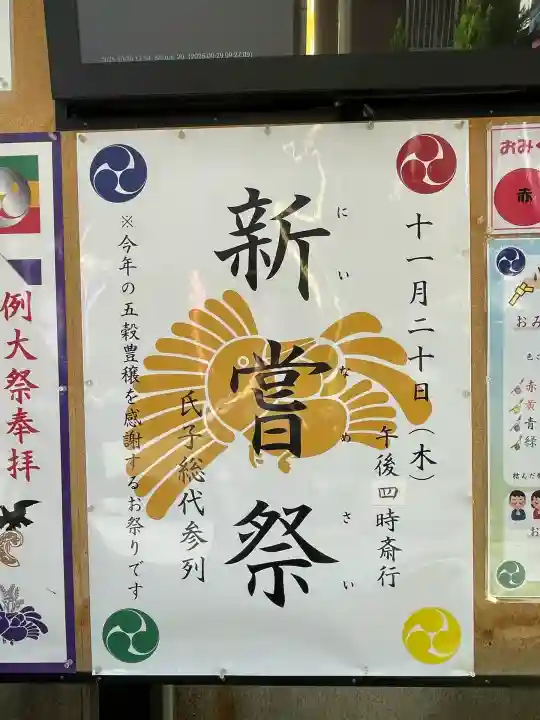 十一月二十日（木）
午後四時斎行
新嘗祭
にいなめさい
氏子総代参列
※今年の五穀豊穣を感謝するお祭りです
例大祭奉拝
おみく
赤
おみ
色
赤
黄
青
緑
結んだ
お